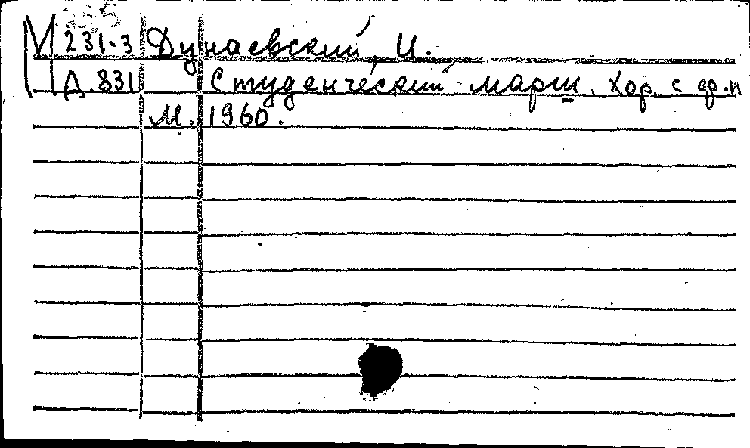 М 231-3 Дунаевский, И.
Д.831 Студенческий марш. Хор. с фр.п
М. 1960.